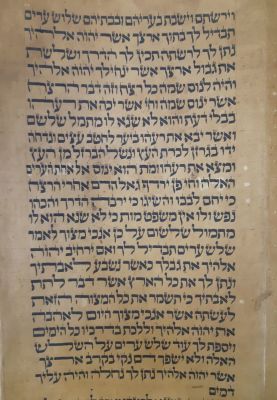 וירשתם וישבת בעריהם ובבתיהם שלוש ערים
תבדיל לך בתוך ארצך אשר יהוה אלהיך
נתן לך לרשתה תכין לך הדרך ושלשת
את גבול ארצך אשר ינחילך יהוה אלהיך
והיה לנוס שמה כל רצח וזה דבר הרצח
אשר ינוס שמה וחי אשר יכה את רעהו
בבלי דעת והוא לא שנא לו מתמל שלשם
ואשר יבא את רעהו ביער לחטב עצים ונדחה
ידו בגרזן לכרת העץ ונשל הברזל מן העץ
ומצא את רעהו ומת הוא ינוס אל אחת הערים
האלה וחי פן ירדף גאל הדם אחרי הרצח
כי יחם לבבו והשיגו כי ירבה הדרך והכהו
נפש ולו אין משפט מות כי לא שנא הוא לו
מתמול שלשום על כן אנכי מצוך לאמר
שלש ערים תבדיל לך ואם ירחיב יהוה
אלהיך את גבלך כאשר נשבע לאבתיך
ונתן לך את כל הארץ אשר דבר לתת
לאבתיך כי תשמר את כל המצוה הזאת
לעשתה אשר אנכי מצוך היום לאהבה
את יהוה אלהיך וללכת בדרכיו כל הימים
ויספת לך עוד שלש ערים על השלש
האלה ולא ישפך דם נקי בקרב ארצך
אשר יהוה אלהיך נתן לך נחלה והיה עליך
דמים